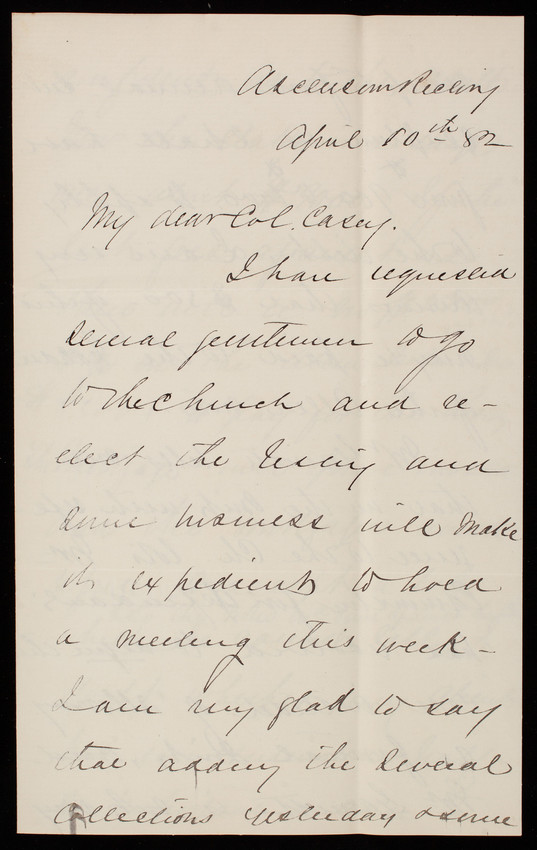 Ascension Rectory
April 10th 82
My dear Col. Casey.
I have requested
several gentlemen to go
to the Church and re-
elect the Vestry and
some business will make
it expedient to hold
a meeting this week -
I am very glad to say
that adding the several
Collections yesterday & some